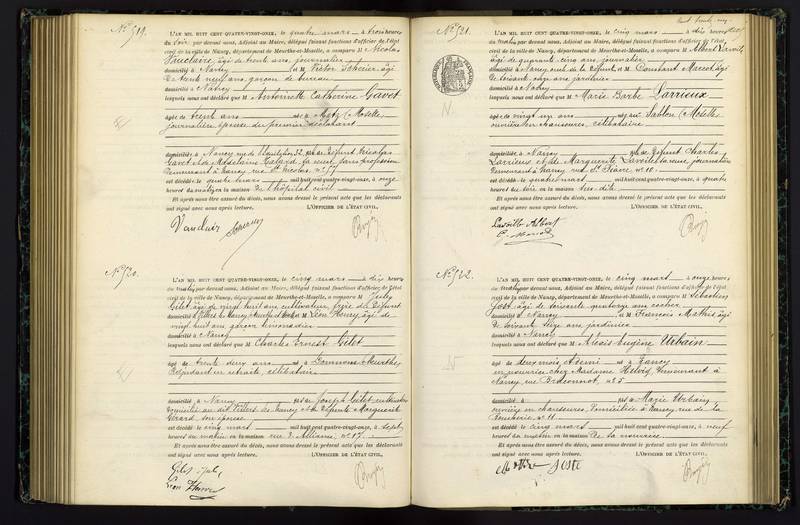 No 519.
L'AN MIL HUIT CENT QUATRE-VINGT-ONZE, le quatre mars à trois heures
du soir par devant nous, Adjoint au Maire, délégué faisant fonctions d'officier de l'état
civil de la ville de Nancy, département de Meurthe-et-Moselle, a comparu M Nicolas
âgé de trente ans, journalier
domicilié à Nancy et M Victor
de trente neuf ans, garçon de bureau
domicilié à Nancy
lesquels nous ont déclaré que M Antoinette Catherine Gavet
âgée de trente ans née à Metz (Moselle)
journalière épouse du premier déclarant
domiciliée à Nancy rue fille de défunt Nicolas
Gavet et de Madeleine sa veuve, sans profession
demeurant à Nancy rue St Nicolas, no 57
est décédée le quatre mars mil huit cent quatre-vingt-onze, à onze
heures du matin en la maison de l'hôpital civil
Et après nous être assuré du décès, nous avons dressé le présent acte que les déclarants
ont signé avec nous après lecture. L'OFFICIER DE L'ÉTAT CIVIL,
No 520.
L'AN MIL HUIT CENT QUATRE-VINGT-ONZE, le cinq mars à dix heures
du matin par devant nous, Adjoint au Maire, délégué faisant fonctions d'officier de l'état
civil de la ville de Nancy, département de Meurthe-et-Moselle, a comparu M Jules
Gilet âgé de vingt huit ans cultivateur, frère du défunt
domicilié à Villers les Nancy et M Léon Henry âgé de
vingt huit ans garçon limonadier
domicilié à Nancy
lesquels nous ont déclaré que M Charles Ernest Gilet
âgé de trente deux ans né à Gemmons (Meurthe)
en retraite, célibataire
domicilié à Nancy fils de Joseph Gilet cultivateur
domicilié au dit Villers les Nancy et de défunte Marguerite
Gérard, son épouse
est décédé le cinq mars mil huit cent quatre-vingt-onze, à sept
heures du matin en la maison rue d'Alliance, no 17.
Et après nous être assuré du décès, nous avons dressé le présent acte que les déclarants
ont signé avec nous après lecture. L'OFFICIER DE L'ÉTAT CIVIL,
No 521.
L'AN MIL HUIT CENT QUATRE-VINGT-ONZE, le cinq mars à dix heures
du matin par devant nous, Adjoint au Maire, délégué faisant fonctions d'officier de l'état
civil de la ville de Nancy, département de Meurthe-et-Moselle, a comparu M Albert
âgé de quarante cinq ans, journalier
domicilié à Nancy et M Constant
de soixante ans jardinier
domicilié à Nancy
lesquels nous ont déclaré que M Marie Barbe Larrieux
âgée de vingt un ans née au Sablon (Moselle)
ouvrière en chaussures, célibataire
domiciliée à Nancy fille de défunt Charles
Larrieux et de Marguerite sa veuve, journalière
demeurant à Nancy rue St Fiacre no 10.
est décédée le quatre mars mil huit cent quatre-vingt-onze, à quatre
heures du soir en la maison sus dite
Et après nous être assuré du décès, nous avons dressé le présent acte que les déclarants
ont signé avec nous après lecture. L'OFFICIER DE L'ÉTAT CIVIL,
No 522.
L'AN MIL HUIT CENT QUATRE-VINGT-ONZE, le cinq mars à onze heures
du matin par devant nous, Adjoint au Maire, délégué faisant fonctions d'officier de l'état
civil de la ville de Nancy, département de Meurthe-et-Moselle, a comparu M Sébastien
Jost, âgé de soixante quatorze ans cocher
domicilié à Nancy et M François Mathis âgé
de soixante seize ans jardinier
domicilié à Nancy
lesquels nous ont déclaré que M Alexis Eugène Urbain
âgé de deux mois et demi né à Nancy
en nourrice chez Madame demeurant à
Nancy rue Braconnot, no 5
domicilié à fils de Marie Urbain
ouvrière en chaussures, domiciliée à Nancy rue de la
no 11
est décédé le cinq mars mil huit cent quatre-vingt-onze, à neuf
heures du matin en la maison de la nourrice
Et après nous être assuré du décès, nous avons dressé le présent acte que les déclarants
ont signé avec nous après lecture. L'OFFICIER DE L'ÉTAT CIVIL,